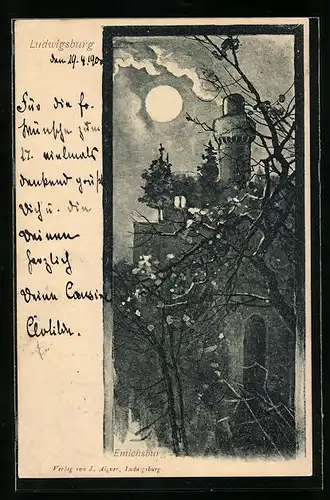 Ludwigsburg
den 29.4.190
Für die fr.
Wünsche zum
vielmals
dankend grüßt
Dich u. die
Deinen
herzlich
Deine Cousine
Clotilde.
Emichsburg
Verlag von J. Aigner, Ludwigsburg